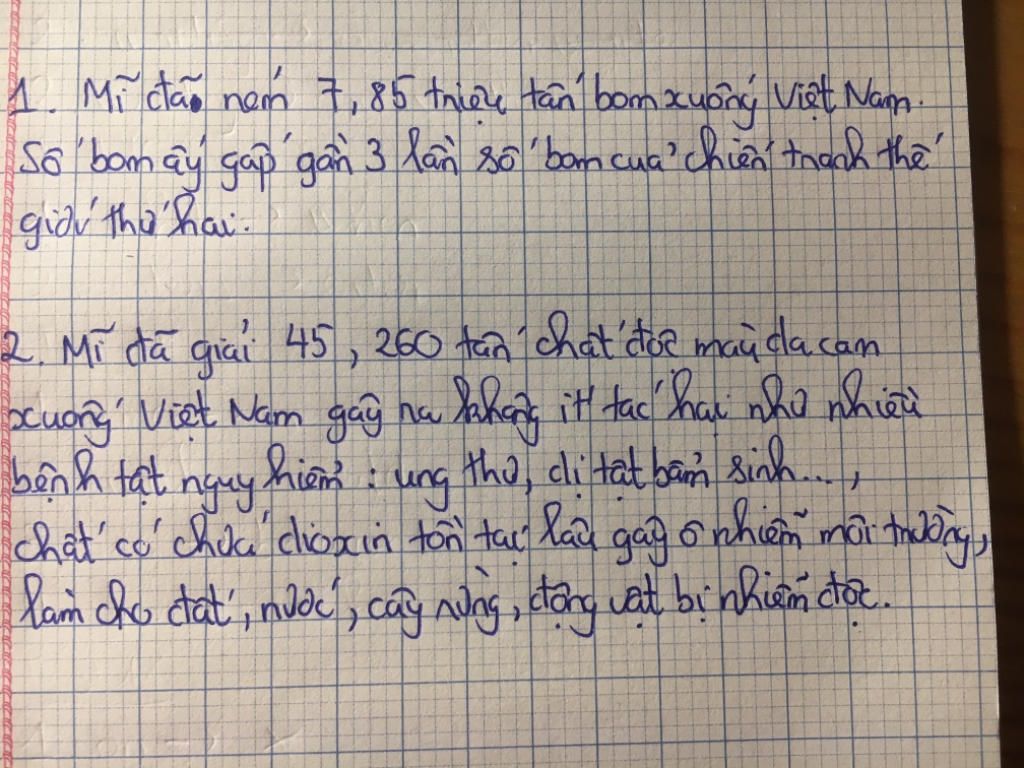 1. Mĩ đã ném 7,85 triệu tấn bom xuống Việt Nam.
Số bom ấy gấp gần 3 lần số bom của chiến tranh thế
giới thứ hai.
2. Mĩ đã giải 45,260 tấn chất độc màu da cam
xuống Việt Nam gây ra không ít tác hại như nhiều
bệnh tật nguy hiểm: ung thư, dị tật bẩm sinh...,
chất có chứa dioxin tồn tại lâu gây ô nhiễm môi trường,
làm cho đất, nước, cây rừng, động vật bị nhiễm độc.